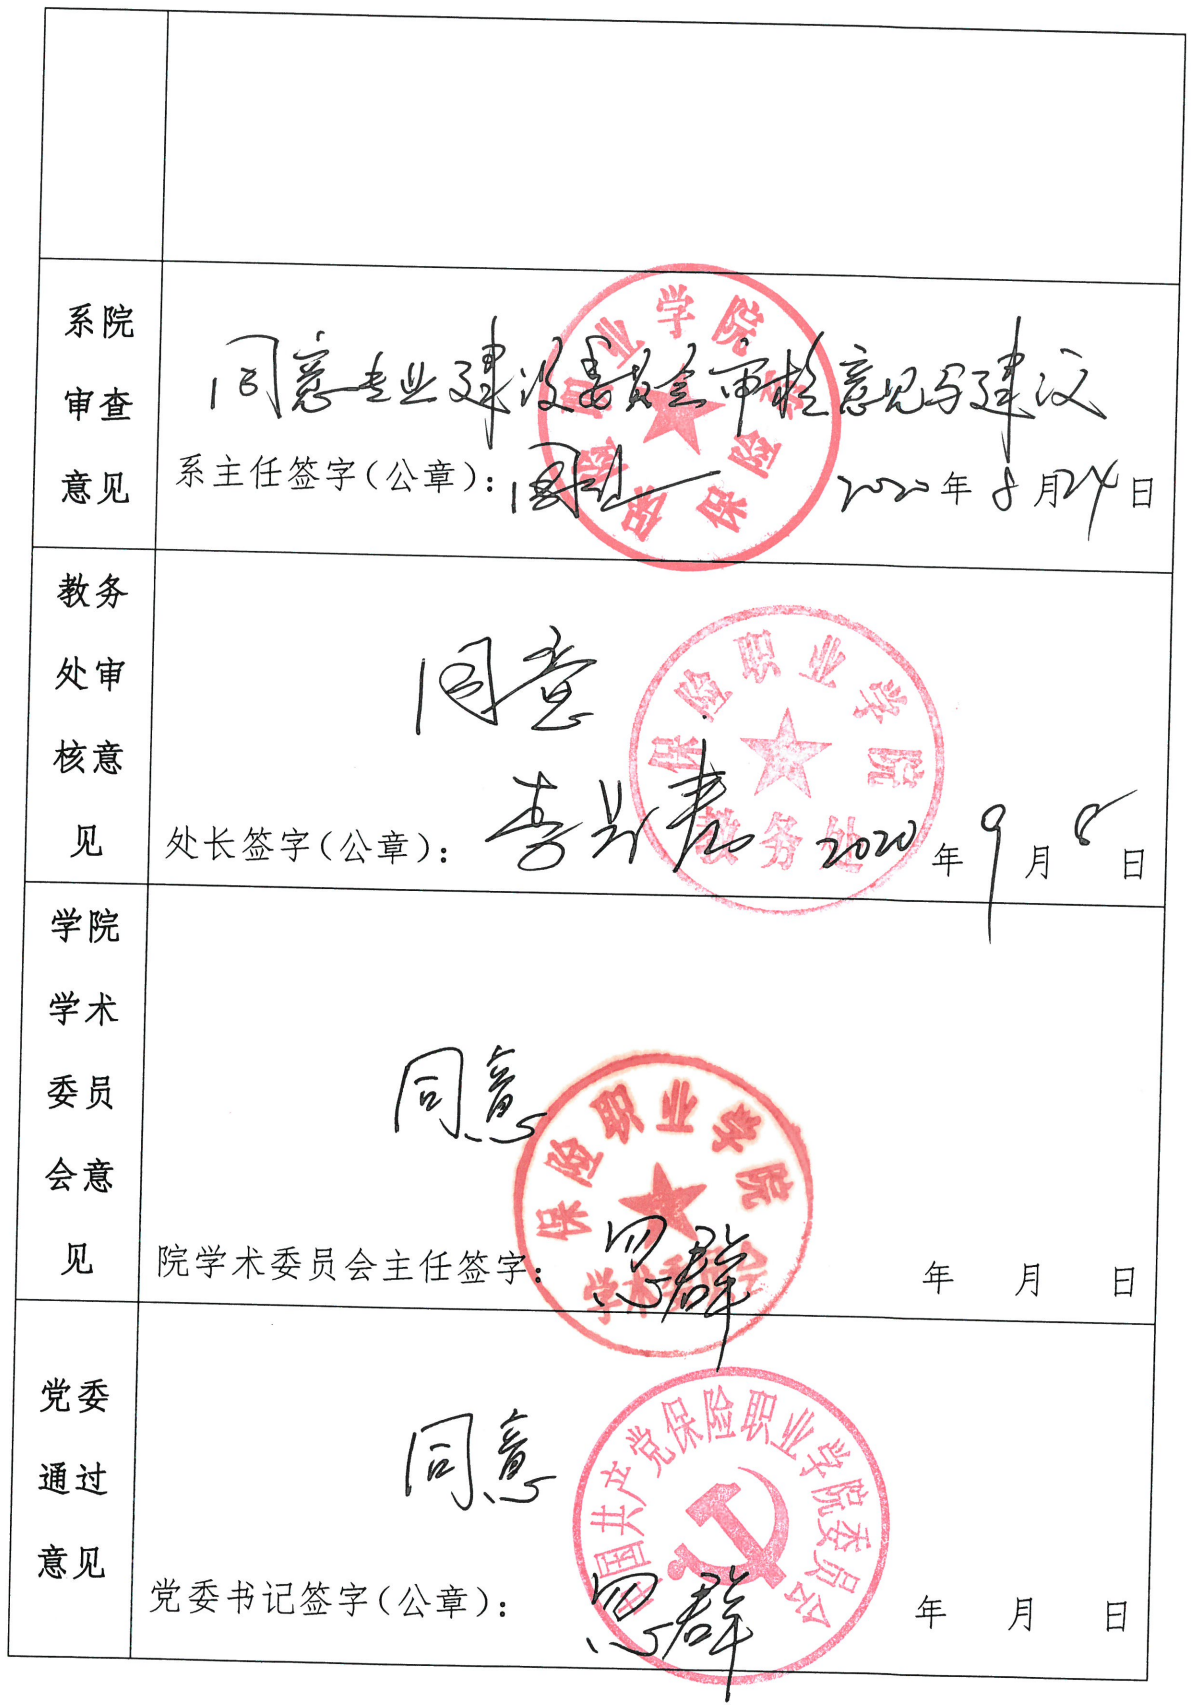 系院
审查
意见
同意专业建设委员会审核意见与建议
系主任签字(公章):
2020年8月24日
保险职业学院
保险系
教务
处审
核意
见
同意
处长签字(公章):
2020年9月8日
保险职业学院
教务处
学院
学术
委员
会意
见
同意
院学术委员会主任签字:
年 月 日
保险职业学院
学术委员会
党委
通过
意见
同意
党委书记签字(公章):
年 月 日
中国共产党保险职业学院委员会